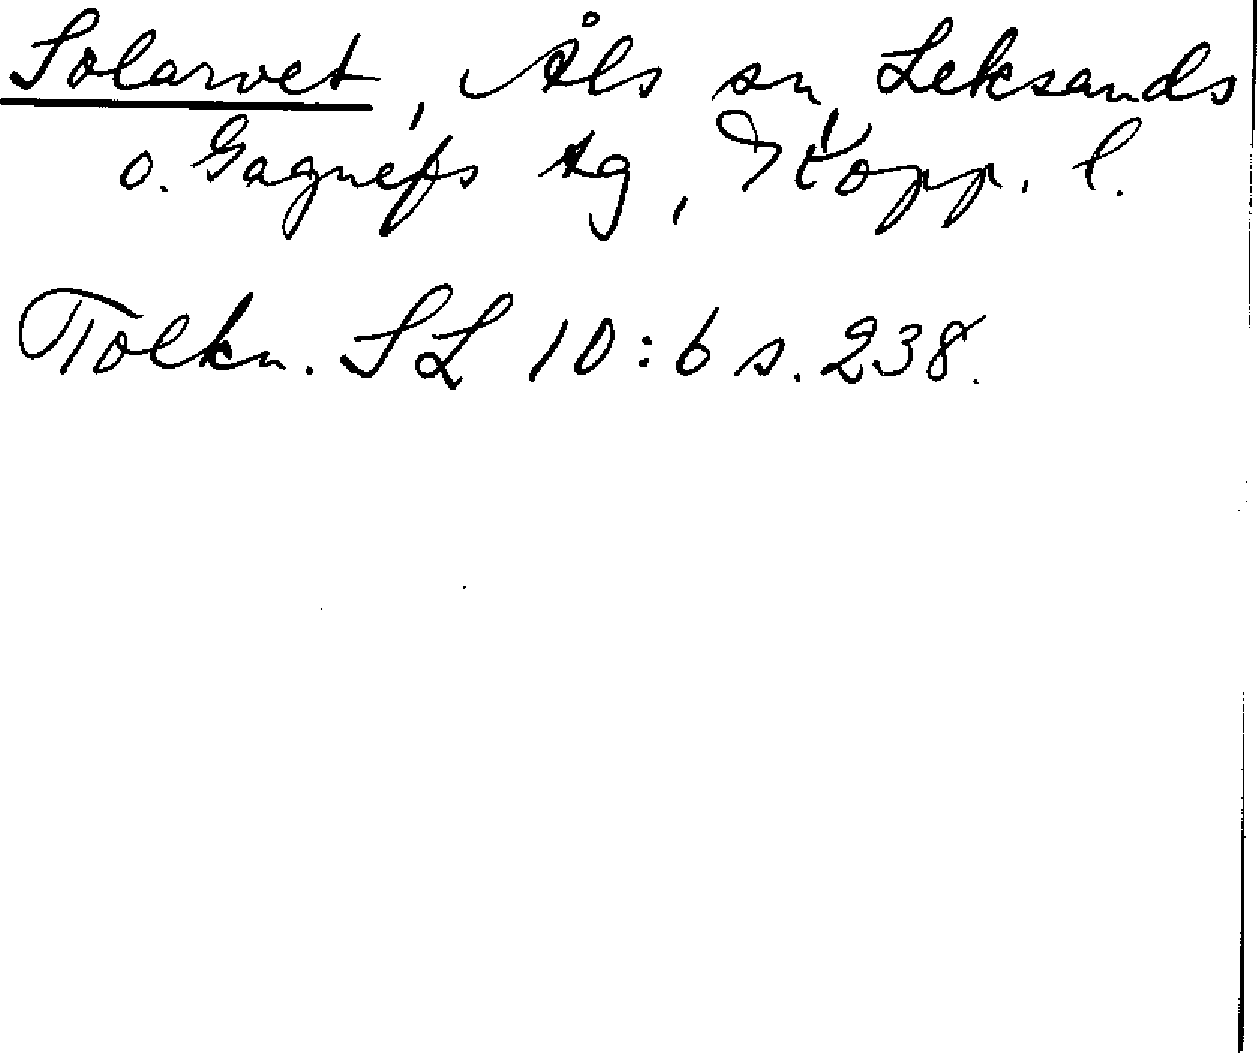 Solarvet, Åls sn, Leksands
o. Gagnefs tg, Kopp. l.
Tolkn. SL 10:6 s. 238.